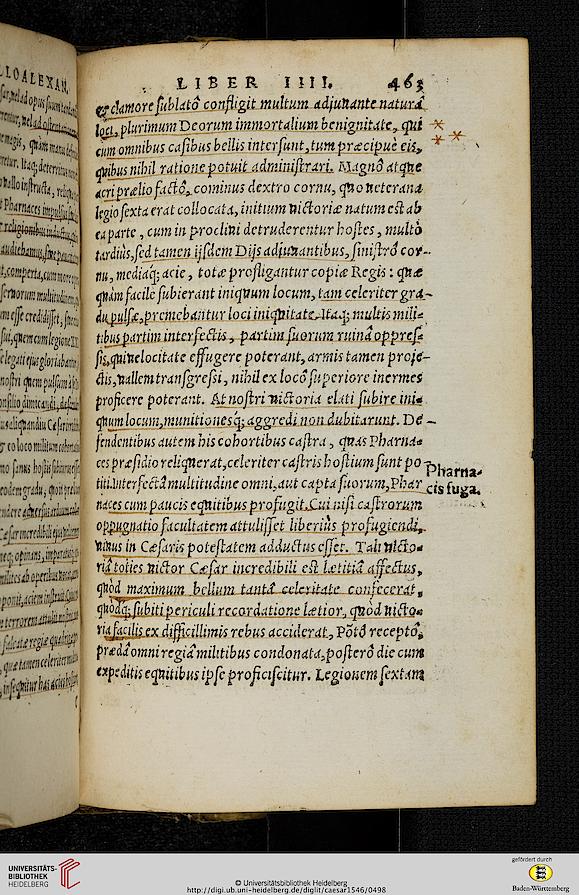 LIBER IIII. 463
& clamore sublatô confligit multum adjuuante naturâ
loci, plurimum Deorum immortalium benignitate, qui
cum omnibus casibus bellis intersunt, tum præcipuè eis,
quibus nihil ratione potuit administrari. Magnô atque
acri prælio factô, cominus dextro cornu, quo ueterana
legio sexta erat collocata, initium uictoriæ natum est ab
ea parte, cum in proclini detruderentur hostes, multò
tardiùs, sed tamen ijsdem Dijs adjuuantibus, sinistrô cor-
nu, mediaq; acie, totæ profligantur copiæ Regis: quæ
quàm facile subierant iniquum locum, tam celeriter gra-
du pulsæ, premebantur loci iniquitate. Itaq; multis mili-
tibus partim interfectis, partim suorum ruinâ oppres-
sis, qui uelocitate effugere poterant, armis tamen proje-
ctis, uallem transgressi, nihil ex locô superiore inermes
proficere poterant. At nostri uictoria elati subire ini-
quum locum, munitionesq; aggredi non dubitarunt. De-
fendentibus autem his cohortibus castra, quas Pharna-
ces præsidio reliquerat, celeriter castris hostium sunt po-
titi. Interfectâ multitudine omni, aut capta suorum, Phar
naces cum paucis equitibus profugit. Cui nisi castrorum
oppugnatio facultatem attulisset liberiùs profugiendi,
uiuus in Cæsaris potestatem adductus esset. Tali uicto-
riâ toties uictor Cæsar incredibili est lætitiâ affectus,
quòd maximum bellum tantâ celeritate confecerat,
quòdq; subiti periculi recordatione lætior, quòd uicto-
ria facilis ex difficillimis rebus acciderat, Põtô receptô,
prædâ omni regiâ militibus condonata, posterô die cum
expeditis equitibus ipse proficiscitur. Legionem sextam
Pharna-
cis fuga.
UNIVERSITÄTS-
BIBLIOTHEK
HEIDELBERG
© Universitätsbibliothek Heidelberg
http://digi.ub.uni-heidelberg.de/diglit/caesar1546/0498
gefördert durch
Baden-Württemberg